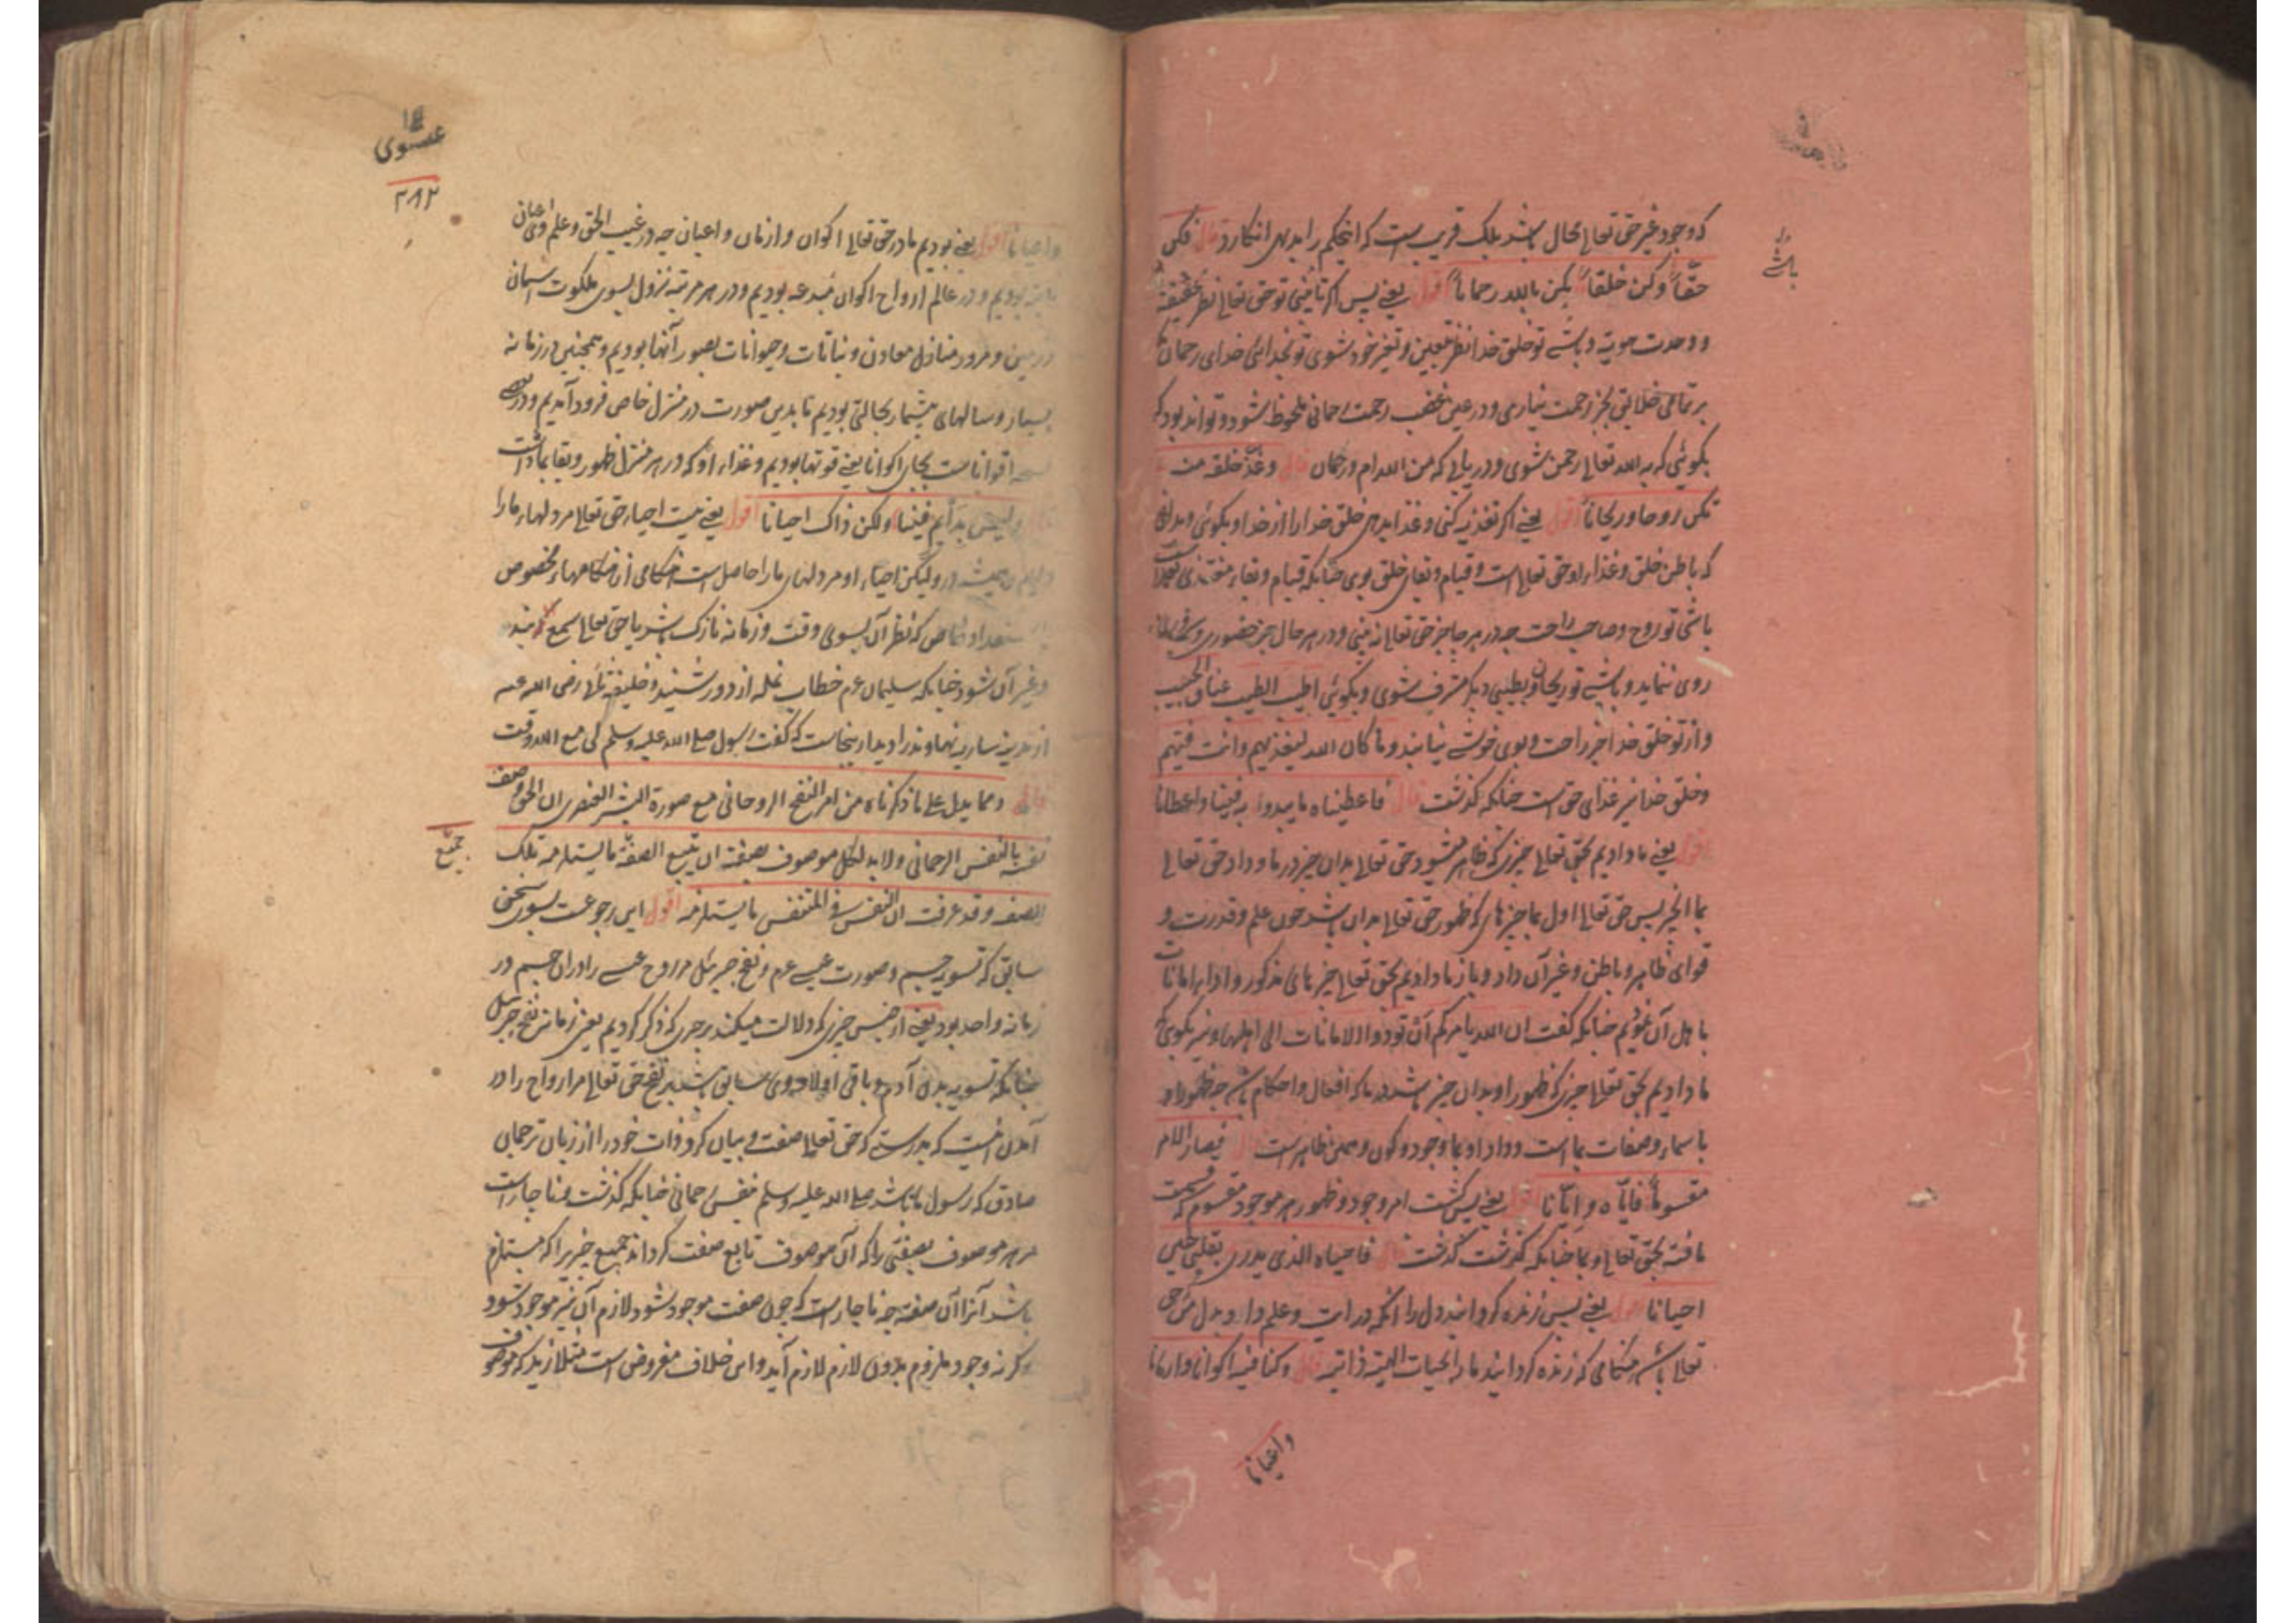 که وجود غیر حق تعالی محال باشد بلکه قریب است که این حکم را بدیهی انکارد قال فکن
حقا وکن خلقا تکن بالله رحمانا اقول یعنی پس اگر تو حق تعالی نظر بحقیقة
و وحدت هویة و باشی تو خلق خدا نظر بتعین و تغیر خود شوی تو بخدای خدای رحمان
بر تمامی خلایق بجز رحمت نیاری و در عین غضب رحمت رحمانی ملحوظ شود و تواند بود که
بگوئی که به الله تعالی رحمن شوی و دریابی که من الله ام و رحمان قال وغذ خلقه منه
تکن روحا وریحانا اقول یعنی اگر تغذیه کنی و غذا بدهی خلق خدا را از خدا و بگوئی و بدانی
که باطن خلق و غذاء او حق تعالی است و قیام و بقای خلق بوی چنانکه قیام و بقاء متغذی بغذا
باشی تو روح و صاحب راحت چه در هر جا جز حق تعالی نه بینی و در هر حال جز حضوری
روی ننماید و باشی تو ریحان و بطیبی دیگر مشرف شوی و بگوئی اطیب الطیب عناق الحبیب
و از تو خلق خدا جز راحت و بوی خوش نیابند وما کان الله لیعذبهم وانت فیهم
و خلق خدا نیز غذای حق است چنانکه گذشت قال فاعطیناه ما یبدو به فینا واعطانا
اقول یعنی ما دادیم بحق تعالی چیزی که ظاهر میشود حق تعالی بدان چیز در ما و داد حق تعالی
بما الخ پس حق تعالی اول بما چیزهای که ظهور حق تعالی بدان باشد چون علم و قدرت و
قوای ظاهر و باطن و غیر آن داد و باز ما دادیم بحق تعالی چیزهای مذکور و اداء امانات
باهل آن نمودیم چنانکه گفت ان الله یامرکم ان تودوا الامانات الی اهلها و نیز بگوی که
ما دادیم بحق تعالی چیزی که ظهور او بدان چیز باشد در ما که افعال و احکام باشد چه ظهور او
باسماء و صفات بما است و داد او بما وجود و کون و همین ظاهر است قال فصار الامر
مقسوما فایاه وایانا اقول یعنی پس گشت امر وجود و ظهور هر موجود مقسوم که قسمت
یافته بحق تعالی و بما چنانکه گذشت گذشت قال فاحیاه الذی یدری بقلبی حین
احیانا اقول یعنی پس زنده گردانید دل را آنکه درایت و علم دارد بدل من حق
تعالی باشد هنگامی که زنده گردانید ما را بحیات الهیه ذاتیه قال وکنا فیه اکوانا وازمانا
واعیانا
باشی
عیسوی
۲۸۲
واعیانا اقول یعنی بودیم ما در حق تعالی اکوان و ازمان و اعیان چه در غیب الحق و علم وی اعیان
ثابته بودیم و در عالم ارواح اکوان مبدعه بودیم و در هر مرتبه نزول بسوی ملکوت آسمان
و زمین و مرور منازل معادن و نباتات و حیوانات بصور آنها بودیم و همچنین در زمانه
بسیار و سالهای بیشمار بحالتی بودیم تا بدین صورت در منزل خاص فرود آمدیم و در بعضی
نسخه اقواتا است بجای اکوانا یعنی قوتها بودیم و غذاء او که در هر منزل ظهور و بقا بما داشت
قال ولیس بدائم فینا ولکن ذاک احیانا اقول یعنی نیست احیاء حق تعالی مر دلهاء ما را
دایم و همیشه در و لیکن احیاء او مر دلهای ما را حاصل است هنگامی از هنگامهاء مخصوص
استعداد خاص که نظر آن بسوی وقت و زمانه نازک باشد یا حق تعالی سمع
و غیر آن شود چنانکه سلیمان عم خطاب نمله از دور شنید و خلیفه ثانی رضی الله عنه
از مدینه ساریه نهاوند را دید از ینجاست که گفت رسول صلی الله علیه وسلم لی مع الله وقت
قال ومما یدل علی ما ذکرناه من امر النفخ الروحانی مع صورة البشر العنصری ان الحق وصف
نفسه بالنفس الرحمانی ولا بد لکل موصوف بصفة ان یتبع الصفة ما یستلزمه تلک
جمیع
الصفة وقد عرفت ان النفس فی المتنفس ما یستلزمه اقول این رجوعست بسوی سخن
سابق که تسویه جسم و صورت عیسی عم و نفخ جبرئیل مر روح عیسی را در آن جسم در
زمانه واحد بود یعنی از جنس چیزی که دلالت میکند بر چیزی که ذکر کردیم یعنی زمانه نفخ جبرئیل
چنانکه تسویه بدن آدم و باقی اولاد وی سابق باشد بر نفخ حق تعالی مر ارواح را در
آبدان اینست که بدرستی که حق تعالی صفت و بیان کرد ذات خود را از زبان ترجمان
صادق که رسول ما باشد صلی الله علیه وسلم بنفس رحمانی چنانکه گذشت و ناچار است
مر هر موصوف بصفتی را که آن موصوف تابع صفت گرداند جمیع چیز را که مستلزم
باشد آنرا آن صفت چه ناچار است که چون صفت موجود شود لازم آن نیز موجود شود
وگرنه وجود ملزوم بدون لازم لازم آید و این خلاف مفروض است مثلا زید که موصوف